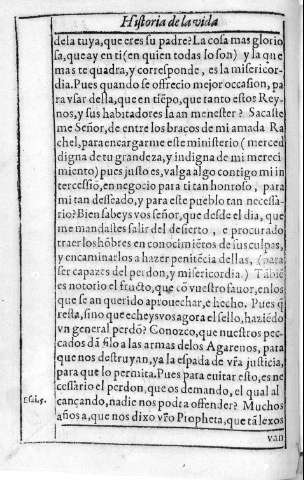 Historia de la vida
dela tuya, que eres su padre? La cosa mas glorio
sa, que ay en ti (en quien todas lo son) y la que
mas te quadra, y corresponde, es la misericor-
dia. Pues quando se offrecio mejor occasion, pa
ra vsar della, que en tiẽpo, que tanto estos Rey-
nos, y sus habitadores la an menester? Sacaste
me Señor, de entre los braços de mi amada Ra
chel, para encargarme este ministerio (merced
digna de tu grandeza, y indigna de mi mereci
miento) pues justo es, valga algo contigo mi in
tercessiõ, en negocio para ti tan honroso, para
mi tan desseado, y para este pueblo tan necessa-
rio? Bien sabeys vos señor, que desde el dia, que
me mandastes salir del desierto, e procurado
traer los hõbres en conocimiẽtos de sus culpas,
y encaminarlos a hazer penitẽcia dellas, (para
ser capazes del perdon, y misericordia.) Tãbiẽ
es notorio el fructo, que cõ vuestro fauor, en los
que se an querido aprouechar, e hecho. Pues q̃
resta, sino que echeys vos agora el sello, haziẽdo
vn general perdõ? Conozco, que nuestros pec-
cados dã filo a las armas delos Agarenos, para
que nos destruyan, ya la espada de vr̃a justicia,
para que lo permita. Pues para euitar esto, es ne
cessario el perdon, que os demando, el qual al
cançando, nadie nos podra offender? Muchos
Esai. 5.
años a, que nos dixo vr̃o Propheta, que tã lexos
van